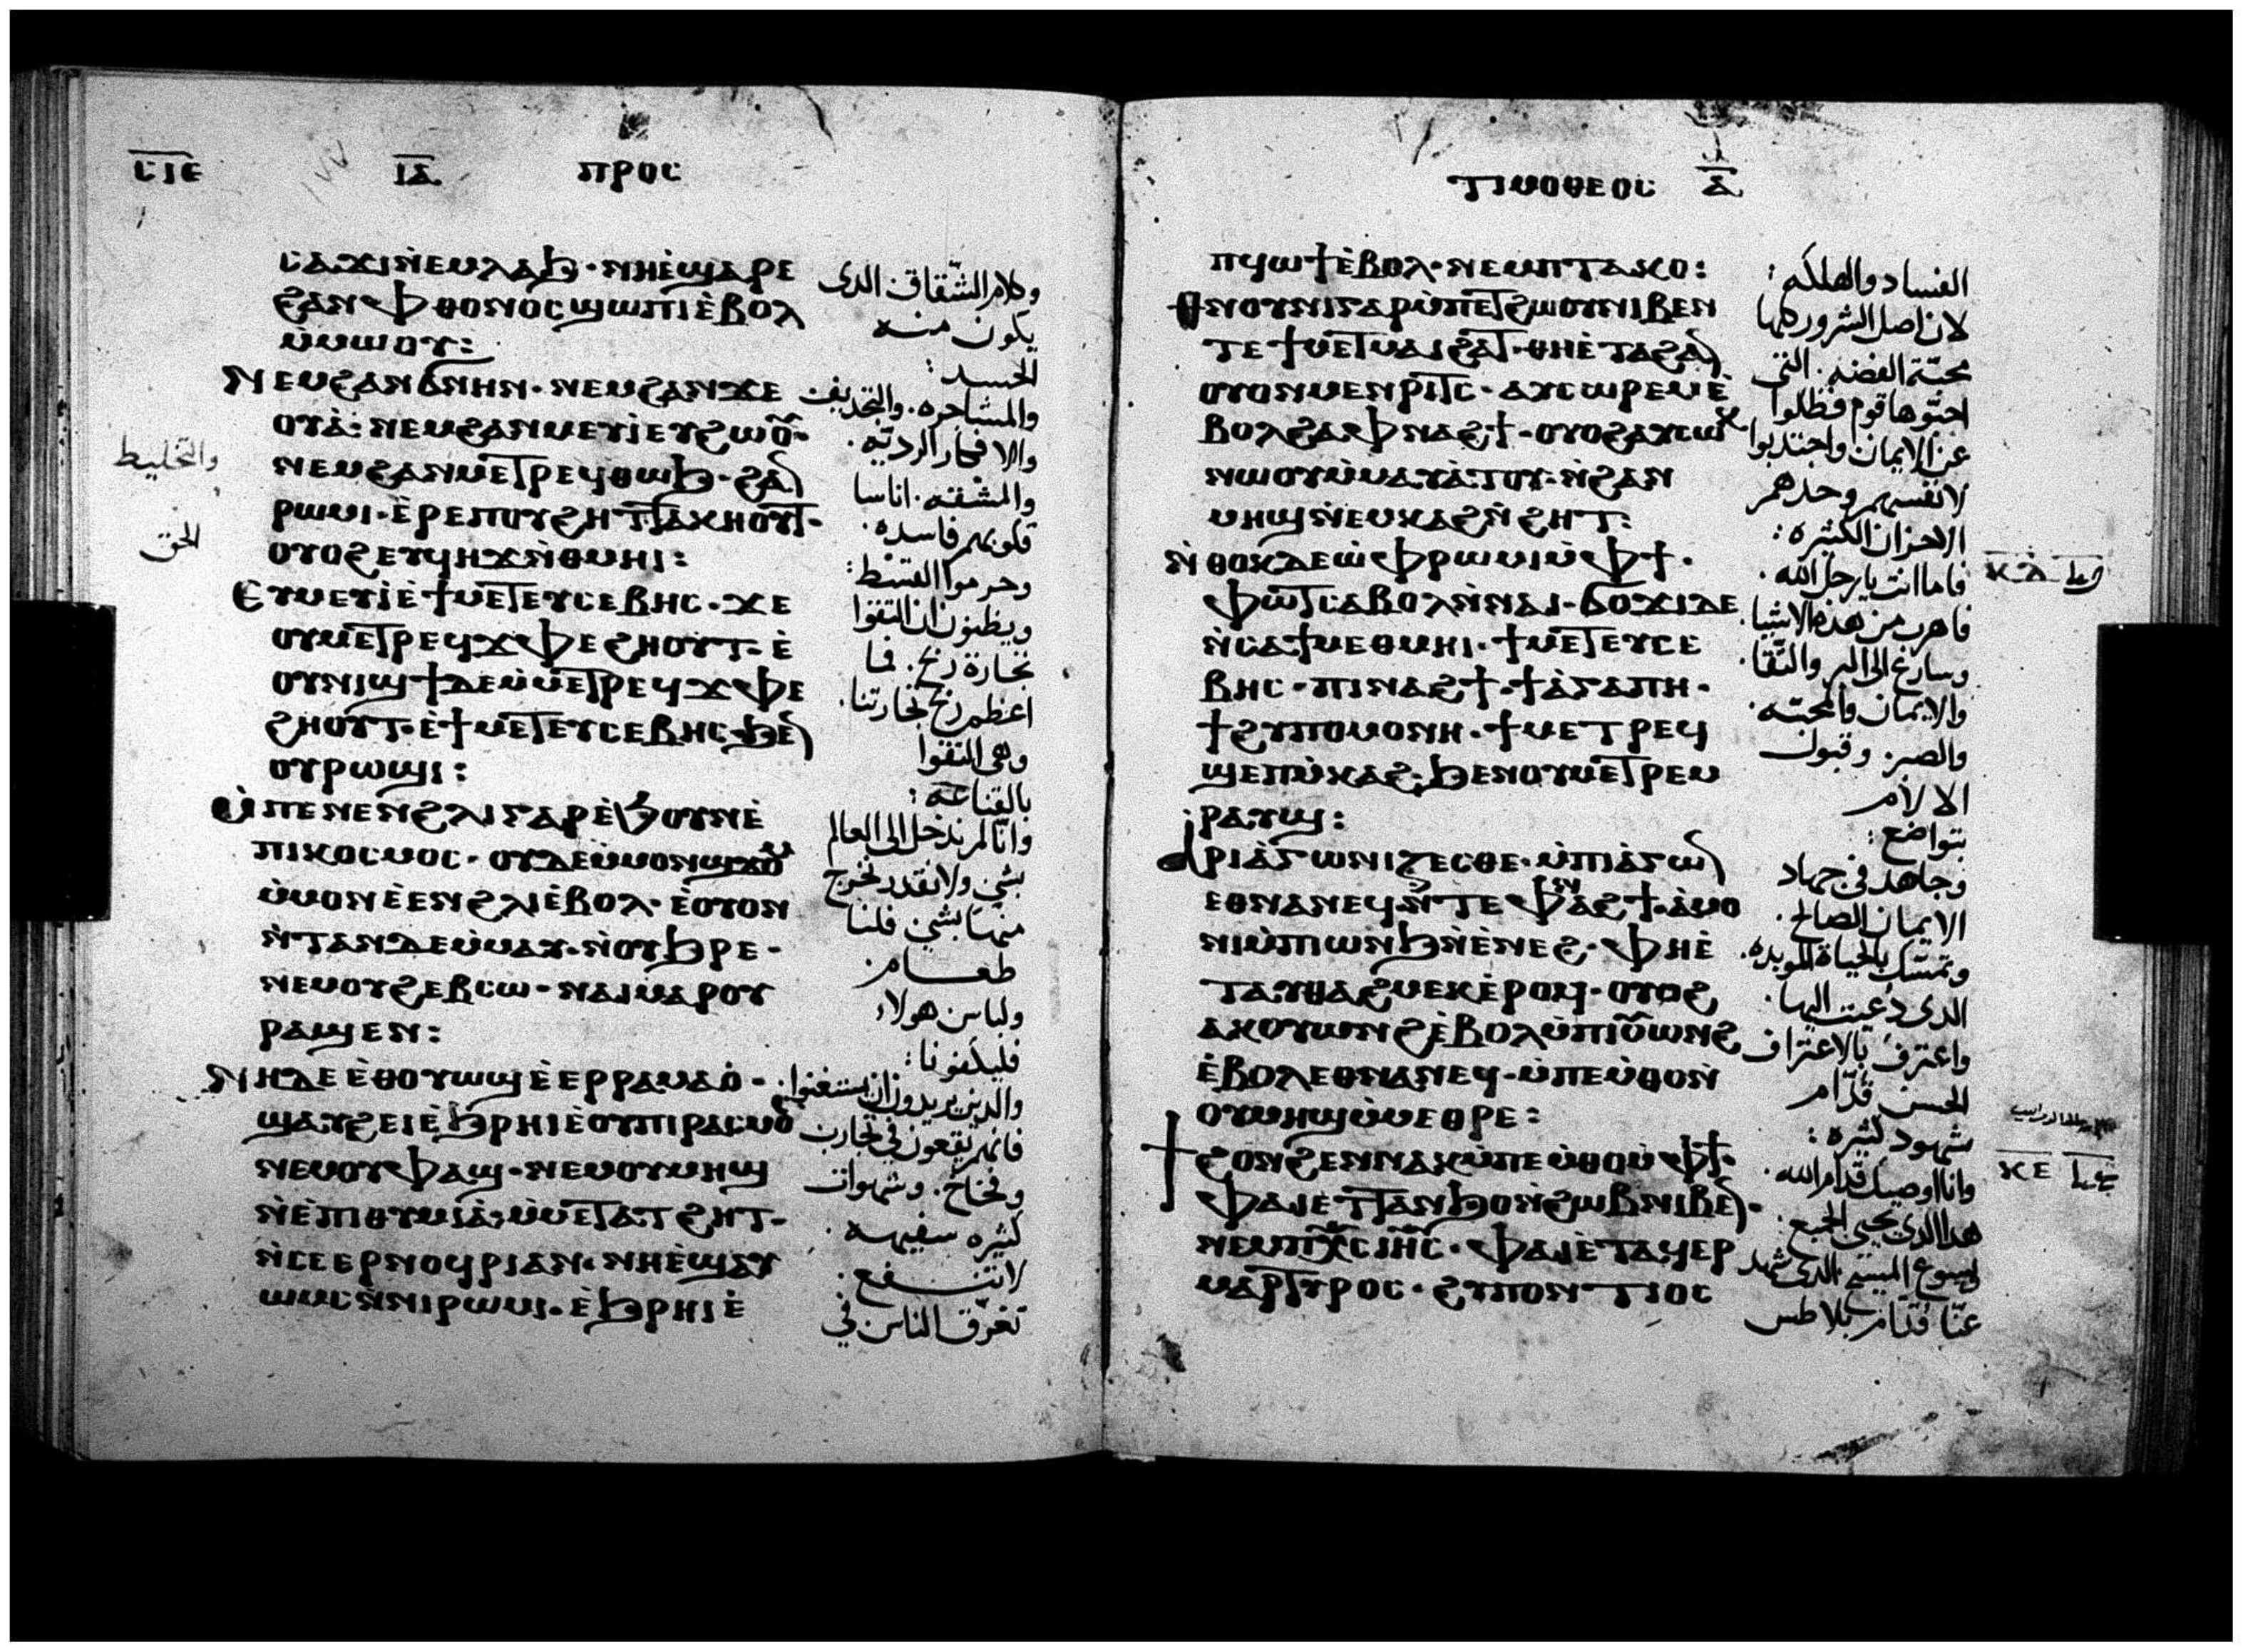 ⲤⲒⲈ ⲒⲀ ⲠⲢⲞⲤ
ⲤⲀϪⲒⲚⲈⲘⲖⲀϦ · ⲚⲎⲈ̀ϢⲀⲢⲈ
ϨⲀⲚⲪⲐⲞⲚⲞⲤϢⲰⲠⲒⲈ̀ⲂⲞⲖ
ⲘⲘⲰⲞⲨ :
ⲚⲈⲘϨⲀⲚϬⲚⲎⲚ · ⲚⲈⲘϨⲀⲚϪⲈ
ⲞⲨⲀ̀ · ⲚⲈⲘϨⲀⲚⲘⲈⲨⲒ̀ⲈⲨϨⲰⲞ̅ ·
ⲚⲈⲘϨⲀⲚⲘⲈⲦⲢⲈϤⲐⲰϦ · ϨⲀ̅
ⲢⲰⲘⲒ · Ⲉ̀ⲢⲈⲠⲞⲨϨⲎⲦⲦⲀⲔⲎⲞⲨⲦ ·
ⲞⲨⲞϨⲈⲨϤⲎϪⲚ̀ⲐⲘⲎⲒ :
ⲈⲨⲘⲈⲨⲒ̀Ⲉ̀ϮⲘⲈⲦⲈⲨⲤⲈⲂⲎⲤ · ϪⲈ
ⲞⲨⲘⲈⲦⲢⲈϤϪⲪⲈϨⲎⲞⲨⲦ · Ⲉ̀
ⲞⲨⲚⲒϢϮⲆⲈⲘ̀ⲘⲈⲦⲢⲈϤϪⲪⲈ
ϨⲎⲞⲨⲦ · Ⲉ̀ϮⲘⲈⲦⲈⲨⲤⲈⲂⲎⲤ · ϦⲈ̅
ⲞⲨⲢⲰϢⲒ :
Ⲙ̀ⲠⲈⲚⲈⲚϨⲖⲒⲄⲀⲢⲈ̀ϦⲞⲨⲚⲈ̀
ⲠⲒⲔⲞⲤⲘⲞⲤ · ⲞⲨⲆⲈⲘ̀ⲘⲞⲚϢϪⲞ̅
Ⲙ̀ⲘⲞⲚⲈ̀ⲈⲚϨⲖⲒⲈ̀ⲂⲞⲖ · Ⲉ̀ⲞⲨⲞⲚ
Ⲛ̀ⲦⲀⲚⲆⲈⲘ̀ⲘⲀⲨ · Ⲛ̀ⲞⲨϦⲢⲈ ·
ⲚⲈⲘⲞⲨϨⲈⲂⲤⲰ · ⲚⲀⲒⲘⲀⲢⲞⲨ
ⲢⲀϢⲈⲚ :
ⲚⲎⲆⲈⲈ̀ⲐⲞⲨⲰϢⲈ̀ⲈⲢⲢⲀⲘⲀⲞ̀ ·
ϢⲀⲨϨⲈⲒⲈ̀ϦⲢⲎⲒⲈ̀ⲞⲨⲠⲒⲢⲀⲤⲘⲞ̅
ⲚⲈⲘⲞⲨⲪⲀϢ · ⲚⲈⲘⲞⲨⲘⲎϢ
Ⲛ̀Ⲉ̀ⲠⲒⲐⲨⲘⲒⲀ̀ · Ⲙ̀ⲘⲈⲦⲀⲦϨⲎⲦ ·
Ⲛ̀ⲤⲈⲈⲢⲚⲞϤⲢⲒⲀⲚ · ⲚⲎⲈ̀ϢⲀⲨ
ⲰⲘⲤⲚ̀ⲚⲒⲢⲰⲘⲒ · Ⲉ̀ϦⲢⲎⲒⲈ̀
وكلام الشقاق الدى
يكون منه
الحسد :
والمشاجره . والتجديف
والافكار الرديه .
والمشقه . اناسا
قلوبهم فاسده .
وحرموا القسط :
ويظنون ان التقوا
تجارة ربح . فما
اعظم ربح تجارتنا .
وهى التقوا
بالقناعه :
وانا لم ندخل الى العالم
بشى ولا نقدر نخرج
منها بشى فلنا
طعام .
ولباس هولاء
فليكفونا :
والدين يريدون ان يستغنوا .
فانهم يقعون في تجارب
وفخاخ . وشهوات
كثيره سفيهه .
لا تنفع .
تغرّق الناس في
والتخليط
الحق
ⲦⲒⲘⲞⲐⲈⲞⲤ Ⲁ
ⲠϤⲰϮⲈ̀ⲂⲞⲖ · ⲚⲈⲘⲠⲦⲀⲔⲞ :
ⲐⲚⲞⲨⲚⲒⲄⲀⲢⲘ̀ⲠⲈⲦϨⲰⲞⲨⲚⲒⲂⲈⲚ
ⲦⲈϮⲘⲈⲦⲘⲀⲒϨⲀⲦ · ⲐⲎⲈ̀ⲦⲀϨⲀ̅
ⲞⲨⲞⲚⲘⲈⲚⲢⲒⲦⲤ · ⲀⲨⲤⲰⲢⲈⲘⲈ̀
ⲂⲞⲖϨⲀⲪⲚⲀϨϮ · ⲞⲨⲞϨⲀⲨⲤⲰⲔ
ⲚⲰⲞⲨⲘ̀ⲘⲀⲨⲀ̀ⲦⲞⲨ · Ⲛ̀ϨⲀⲚ
ⲘⲎϢⲚ̀ⲈⲘⲔⲀϨⲚ̀ϨⲎⲦ :
Ⲛ̀ⲐⲞⲔⲆⲈⲰ̀ⲪⲢⲰⲘⲒⲘ̀ⲪϮ ·
ⲪⲰⲦⲤⲀⲂⲞⲖⲚ̀ⲚⲀⲒ · ϬⲞϪⲒⲆⲈ
Ⲛ̀ⲤⲀϮⲘⲈⲐⲘⲎⲒ · ϮⲘⲈⲦⲈⲨⲤⲈ
ⲂⲎⲤ · ⲠⲒⲚⲀϨϮ · ϮⲀ̀ⲄⲀⲠⲎ ·
ϮϨⲨⲠⲞⲘⲞⲚⲎ · ϮⲘⲈⲦⲢⲈϤ
ϢⲈⲠⲘ̀ⲔⲀϨ · ϦⲈⲚⲞⲨⲘⲈⲦⲢⲈⲘ
ⲢⲀⲨϢ :
ⲀⲢⲒⲀ̀ⲄⲰⲚⲒⲌⲈⲤⲐⲈ · Ⲙ̀ⲠⲒⲀ̀ⲄⲰ̅
ⲈⲐⲚⲀⲚⲈϤ · Ⲛ̀ⲦⲈⲪⲚⲀϨϮ · Ⲁ̀ⲘⲞ
ⲚⲒⲘ̀ⲠⲰⲚϦⲚ̀Ⲉ̀ⲚⲈϨ · ⲪⲎⲈ̀
ⲦⲀⲨⲐⲀϨⲘⲈⲔⲈ̀ⲢⲞϤ · ⲞⲨⲞϨ
ⲀⲔⲞⲨⲰⲚϨⲈ̀ⲂⲞⲖⲘ̀ⲠⲒⲞⲨⲰⲚϨ
Ⲉ̀ⲂⲞⲖⲈⲐⲚⲀⲚⲈϤ · Ⲙ̀ⲠⲈⲘ̀ⲐⲞⲚ̀
ⲞⲨⲘⲎϢⲘ̀ⲘⲈⲐⲢⲈ :
ϮϨⲞⲚϨⲈⲚⲚⲀⲔⲘ̀ⲠⲈⲘ̀ⲐⲞⲘ̀ⲪϮ ·
ⲪⲀⲒⲈ̀ⲦⲦⲀⲚϦⲞⲚ̀ϨⲰⲂⲚⲒⲂⲈ̅ ·
ⲚⲈⲘⲠⲬⲤ ⲒⲎⲤ · ⲪⲀⲒⲈ̀ⲦⲀϤⲈⲢ
ⲘⲀⲢⲦⲨⲢⲞⲤ · ϨⲨⲠⲞⲚⲦⲒⲞⲤ
الفساد والهلكه :
لان اصل الشرور كلها
محبّة الفضه . التى
احبّوها قوم فظلوا
عن الايمان واجتدبوا
لانفسهم وحدهم
الاحزان الكثيره :
فاما انت يا رجل الله .
فاهرب من هذه الاشيا .
وسارع الى البر والتقا .
والايمان والمحبّه .
والصبر . وقبول
الالام
بتواضع :
وجاهد فى جهاد
الايمان الصالح .
وتمسّك بالحياة الموبده .
الدى دعيت اليها .
واعترف بالاعتراف
الحسن قدّام
شهود كثيره :
وانا اوصيك قدام الله .
هدا الدى يحيى الجميع .
ويسوع المسيح الدى شهد
عنّا قدّام بيلاطس
ⲔⲆ
ⲔⲈ